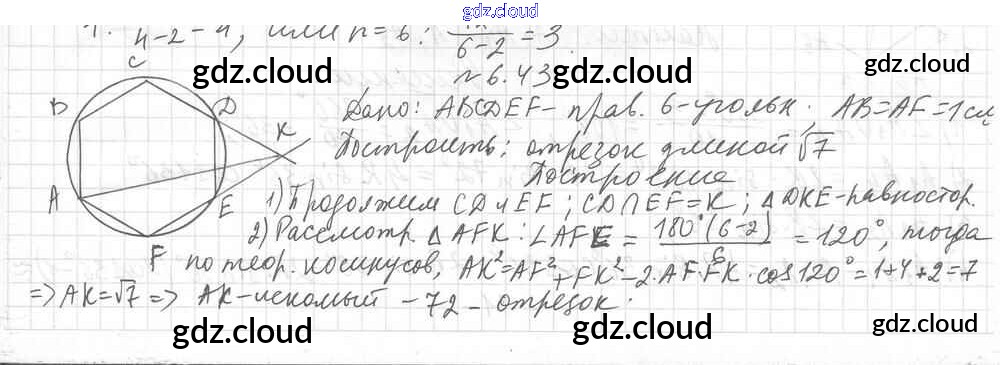 gdz.cloud
4-2-4, или n=6: 6-2 =3.
gdz.cloud gdz.cloud gdz.cloud
№6.43
C
B D K
A E
F
Дано: ABCDEF- прав. 6-угольн., AB=AF=1см
Построить: отрезок длиной √7
Построение
1) Продолжим CD и EF; CD∩EF=K; △DKE-равностор.
2) Рассмотр. △AFK: ∠AFE = 180°(6-2) / 6 = 120°, тогда
по теор. косинусов, AK²=AF²+FK²-2·AF·FK·cos120°=1+4+2=7
=> AK=√7 => AK-искомый - 72 - отрезок.
gdz.cloud gdz.cloud gdz.cloud